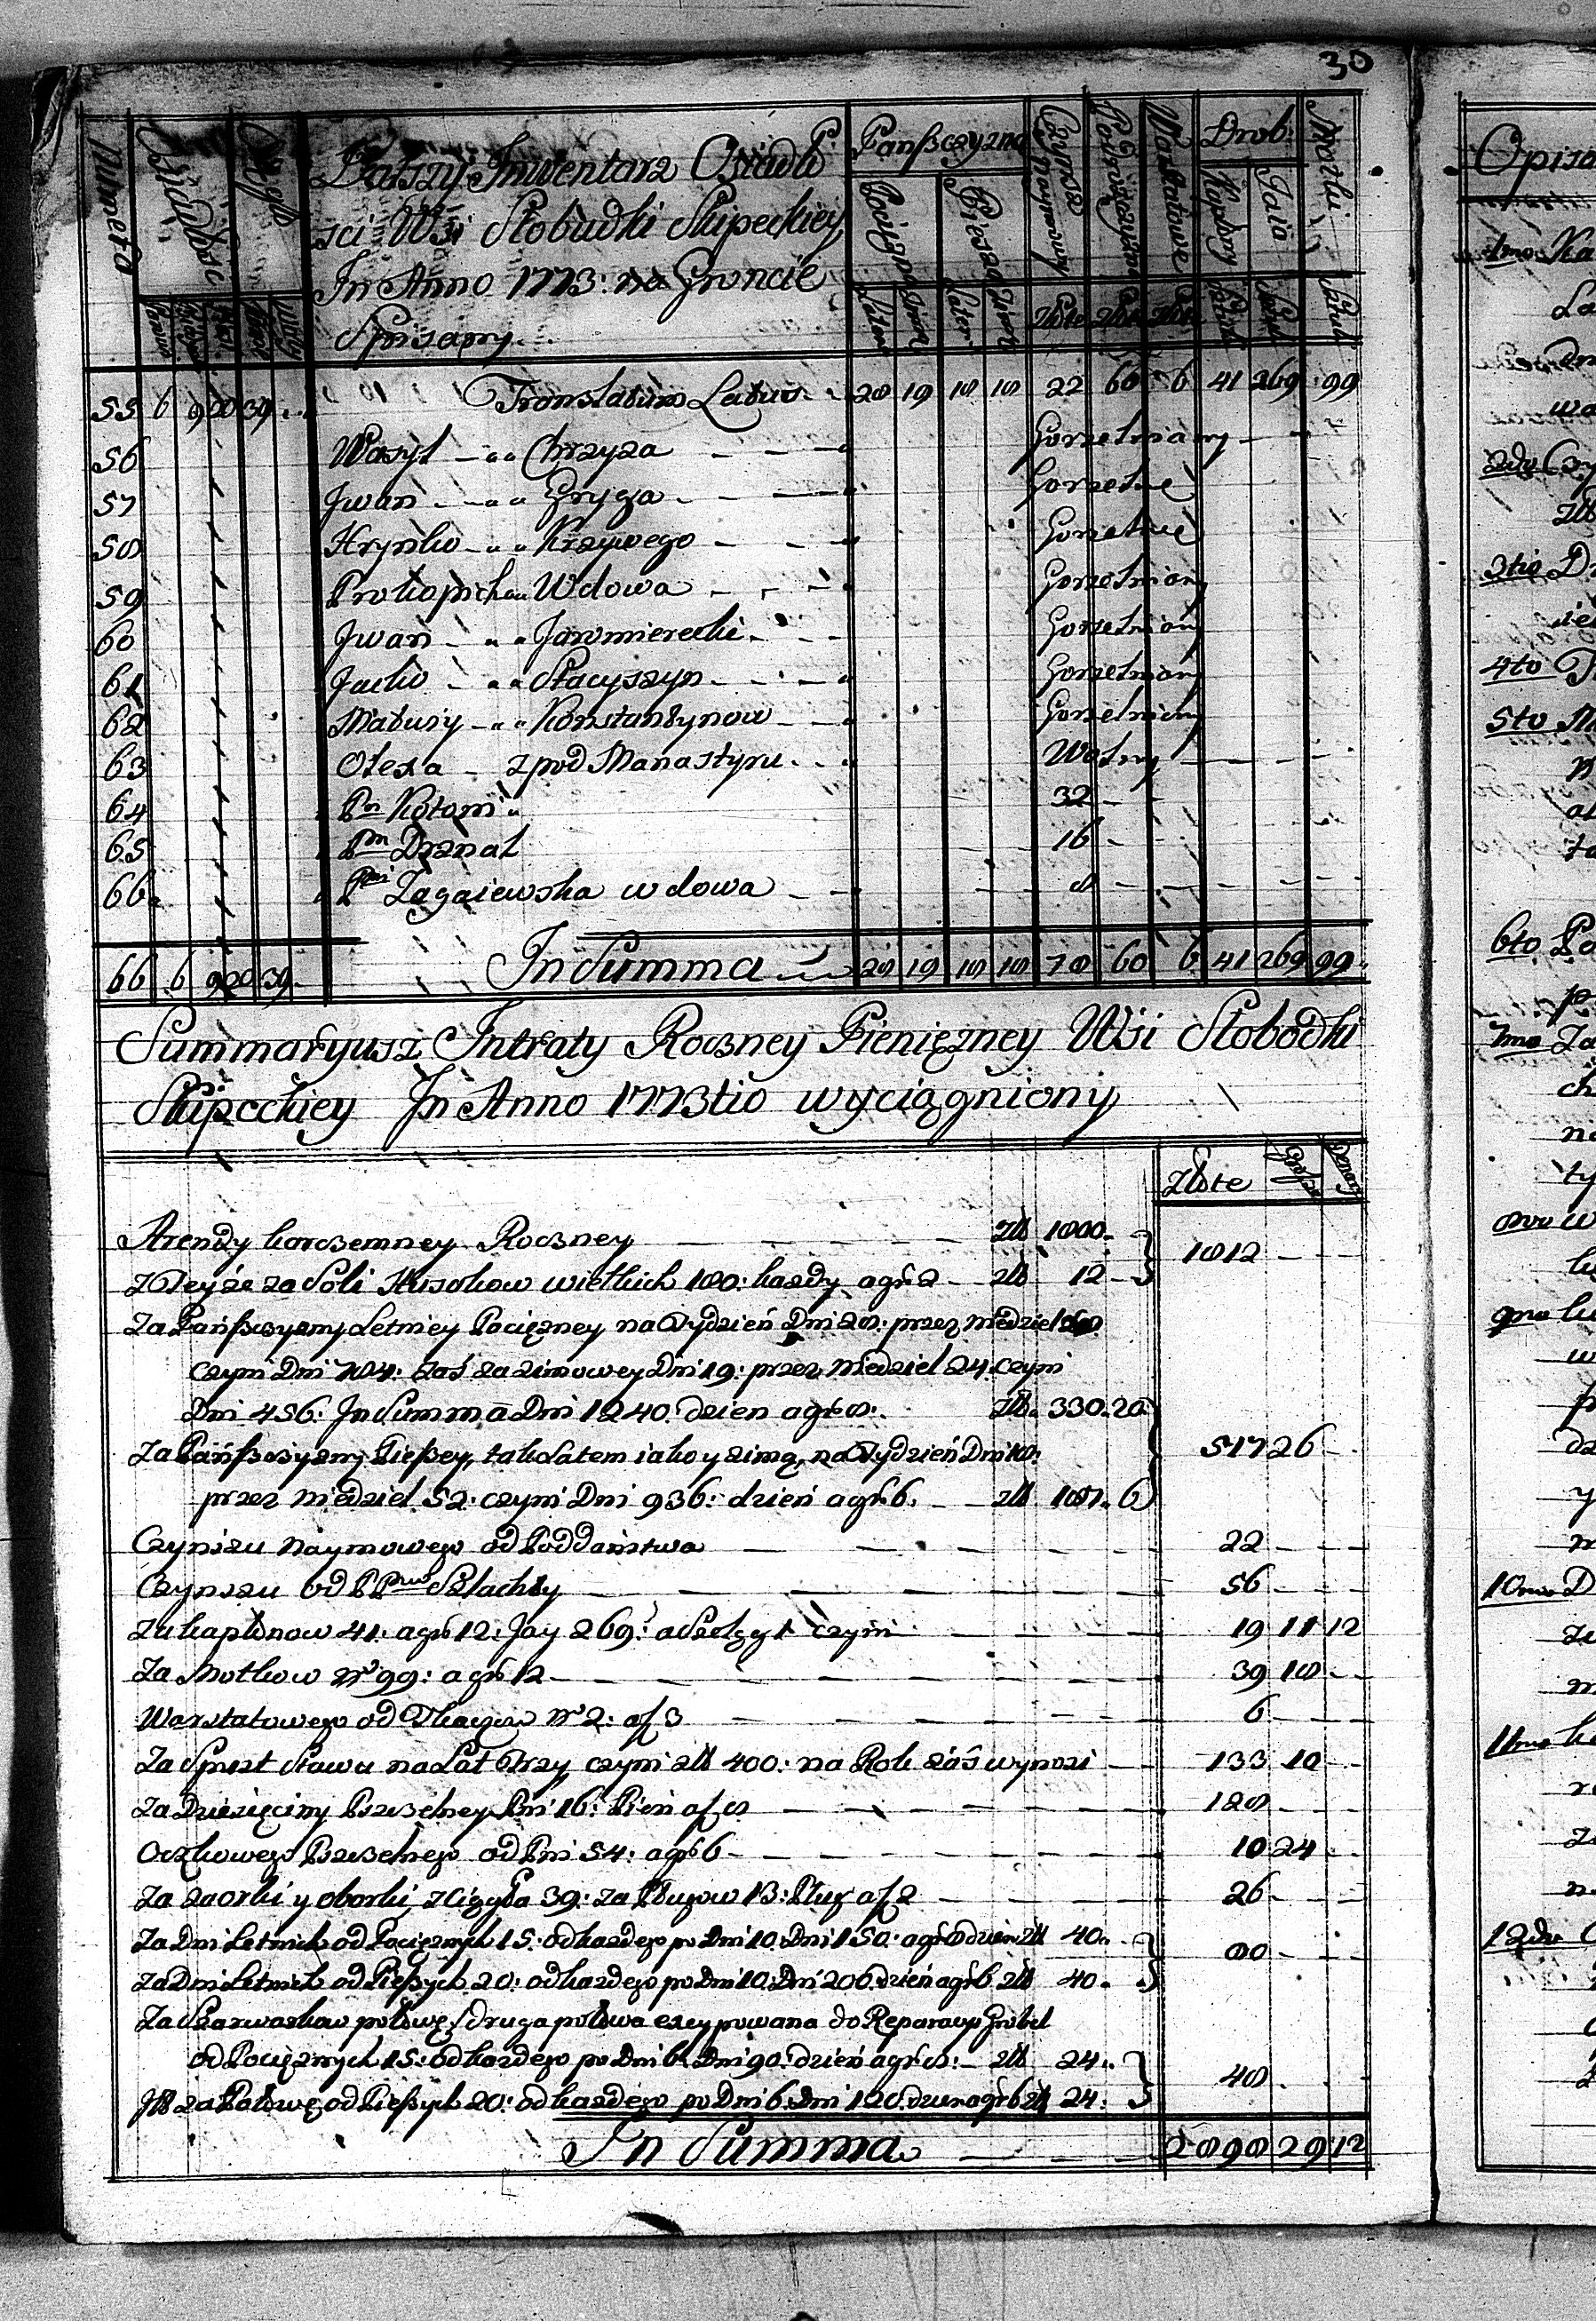 30
Numero
Osiadłosc
Dalszy Inwentarz Osiadło
sci Wsi Słobudki Słupeckiey
In Anno 1773: na Gruncie
Spisany.
Panszczyzna
Pociągła
Piesza
Czynsz Naymowy
Podusczyzne
Warstatowe
Drob:
Kapłony
Jaia
Motki
55 6 900 39 Translatum Latus 28 19 18 18 22 60 6 41 269 99
56 Wasyl Chrzyza Gorzelniany
57 Jwan Gryga Gorzelne
58 Hrynko Krzywego Gorzelne
59 Prokopicha Wdowa Gorzelniany
60 Jwan Jarmierecki Gorzelniany
61 Jacko Stacyszyn Gorzelniany
62 Matwiy Konstantynow Gorzelniany
63 Olexa z pod Manastyru Wolny
64 Pn Kołomi 32
65 Pn Drznal 16
66 Pni Zagaiewska wdowa 8
66 6 900 39 In Summa 28 19 18 18 78 60 6 41 269 99
Summaryusz Intraty Roczney Pienięzney Wsi Słobodki
Słupeckiey In Anno 1773tio wyciągniony
Złote Grosze Denary
Arendy karczemney Roczney złł 1800
z Teyże za Soli Husokow wielkich 180: kazdy agr: 2 złł 12 1812
Za Panszczyzny Letniey Pociężney na Tydzień Dni 28: przez Niedziel 28
czyni Dni 784: zaś za zimowey Dni 19: przez Niedziel 24 czyni
Dni 456: In Summa Dni 1240 dzien agr: 8: złł. 330. 20
Za Panszczyzny Pieszey, tak Latem iako y zimą, na Tydzień Dni 18: 517 26
przez Niedziel 52: czyni Dni 936: dzień agr: 6. złł 187. 6
Czynszu Naymowego od Poddaństwa 22
Czynszu od PPnow Szlachty 56
Za kapłonow 41: agr: 12: Jay 269: a Szelągu 1 czyni 19 11 12
Za Motkow Nr 99: agr: 12 39 18
Warstatowego od Tkaczow Nr 2: a f 3 6
Za Spust Stawu na Lat Trzy czyni złł 400: na Rok zaś wynosi 133 10
Za Dziesięciny Pszczelney Pni 16: Pień a f 8 128
Oczkowego Pszczelnego od Pni 54: agr 6 10 24
Za zaorki y oborki z Ciągła 39: za Pługow 13: Pług a f 2 26
Za Dni Letnich od Pociężnych 15: od kazdego po Dni 10: Dni 150: agr: 8 dzien złł 40
Za Dni Letnich od Pieszych 20: od kazdego po Dni 10: Dni 200 dzień agr: 6 złł 40 80
Za Szarwarkow połowę / druga połowa excypowana do Reparacyi Grobel
od Pociężnych 15: od kazdego po Dni 6: Dni 90: dzień agr: 8: złł 24
Itt za Połowę od Pieszych 20: od kazdego po Dni 6: Dni 120 dzien agr 6 złł 24 48
In Summa 2898 29 12